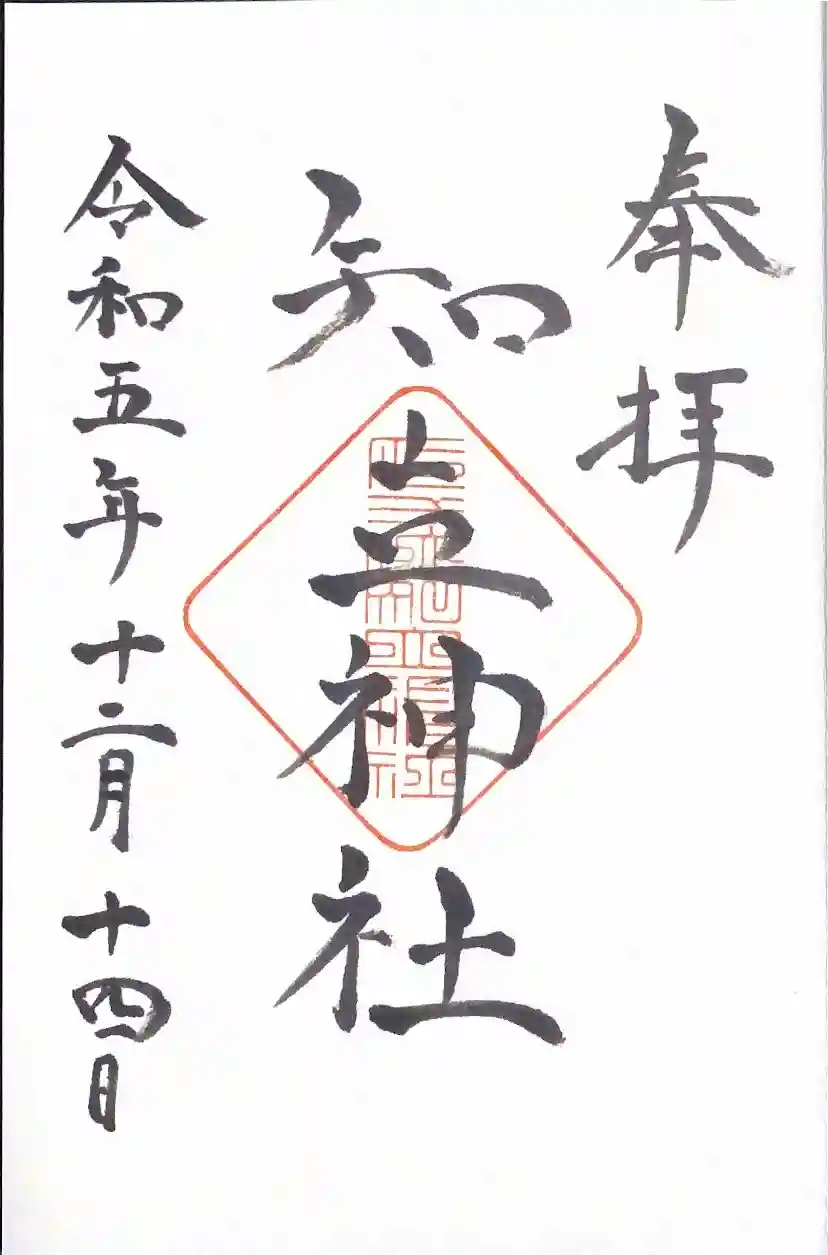 奉拝
知立神社
令和五年十二月十四日